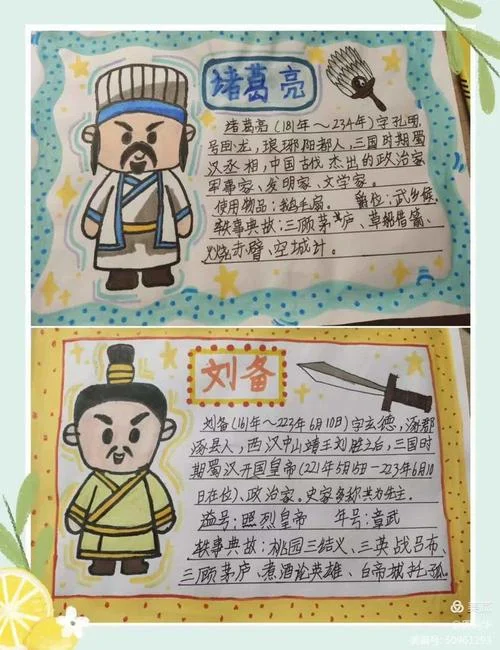 诸葛亮
诸葛亮(181年~234年)字孔明
号卧龙，琅琊阳都人，三国时期蜀
汉丞相，中国古代杰出的政治家
军事家、发明家、文学家。
使用物品：鹅毛扇。 爵位：武乡侯
轶事典故：三顾茅庐、草船借箭、
火烧赤壁、空城计。
刘备
刘备(161年~223年6月10日)字玄德，涿郡
涿县人，西汉中山靖王刘胜之后，三国时
期蜀汉开国皇帝(221年5月6日-223年6月10
日在位)、政治家。史家多称其为先主。
谥号：昭烈皇帝 年号：章武
轶事典故：桃园三结义、三英战吕布、
三顾茅庐、煮酒论英雄、白帝城托孤